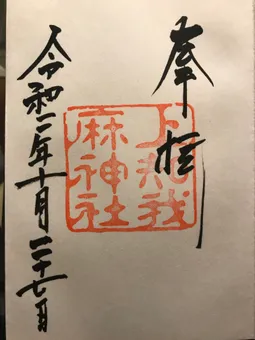 奉拝
下知我
麻神社
令和二年十月二十七日